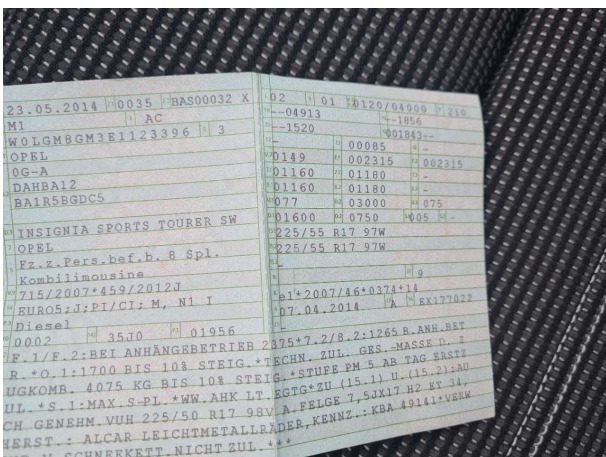 23.05.2014 0035 BAS00032 X
M1 AC
W0LGM8GM3E1123396 3
OPEL
0G-A
DAHBA12
BA1R5BGDC5
INSIGNIA SPORTS TOURER SW
OPEL
Fz.z.Pers.bef.b. 8 Spl.
Kombilimousine
715/2007*459/2012J
EURO5;J;PI/CI; M, N1 I
Diesel
0002 35J0 01956
02 01 0120/04000 210
--04913 --1856
--1520 001843--
- 00085 -
0149 002315 002315
01160 01180 -
01160 01180 -
077 03000 075
01600 0750 005 -
225/55 R17 97W
225/55 R17 97W
-
- 9
e1*2007/46*0374*14
07.04.2014 A EX177022
-
F.1/F.2:BEI ANHÄNGEBETRIEB 2375*7.2/8.2:1265 B.ANH.BET
R.*O.1:1700 BIS 10% STEIG.*TECHN. ZUL. GES.-MASSE D. Z
UGKOMB. 4075 KG BIS 10% STEIG.*STUFE PM 5 AB TAG ERSTZ
UL.*S.1:MAX.S-PL.*WW.AHK LT.EGTG*ZU (15.1) U.(15.2):AU
CH GENEHM.VUH 225/50 R17 98V A.FELGE 7,5JX17 H2 ET 34,
HERST.: ALCAR LEICHTMETALLRÄDER,KENNZ.: KBA 49141*VERW
SCHNEEKETT.NICHT ZUL.***